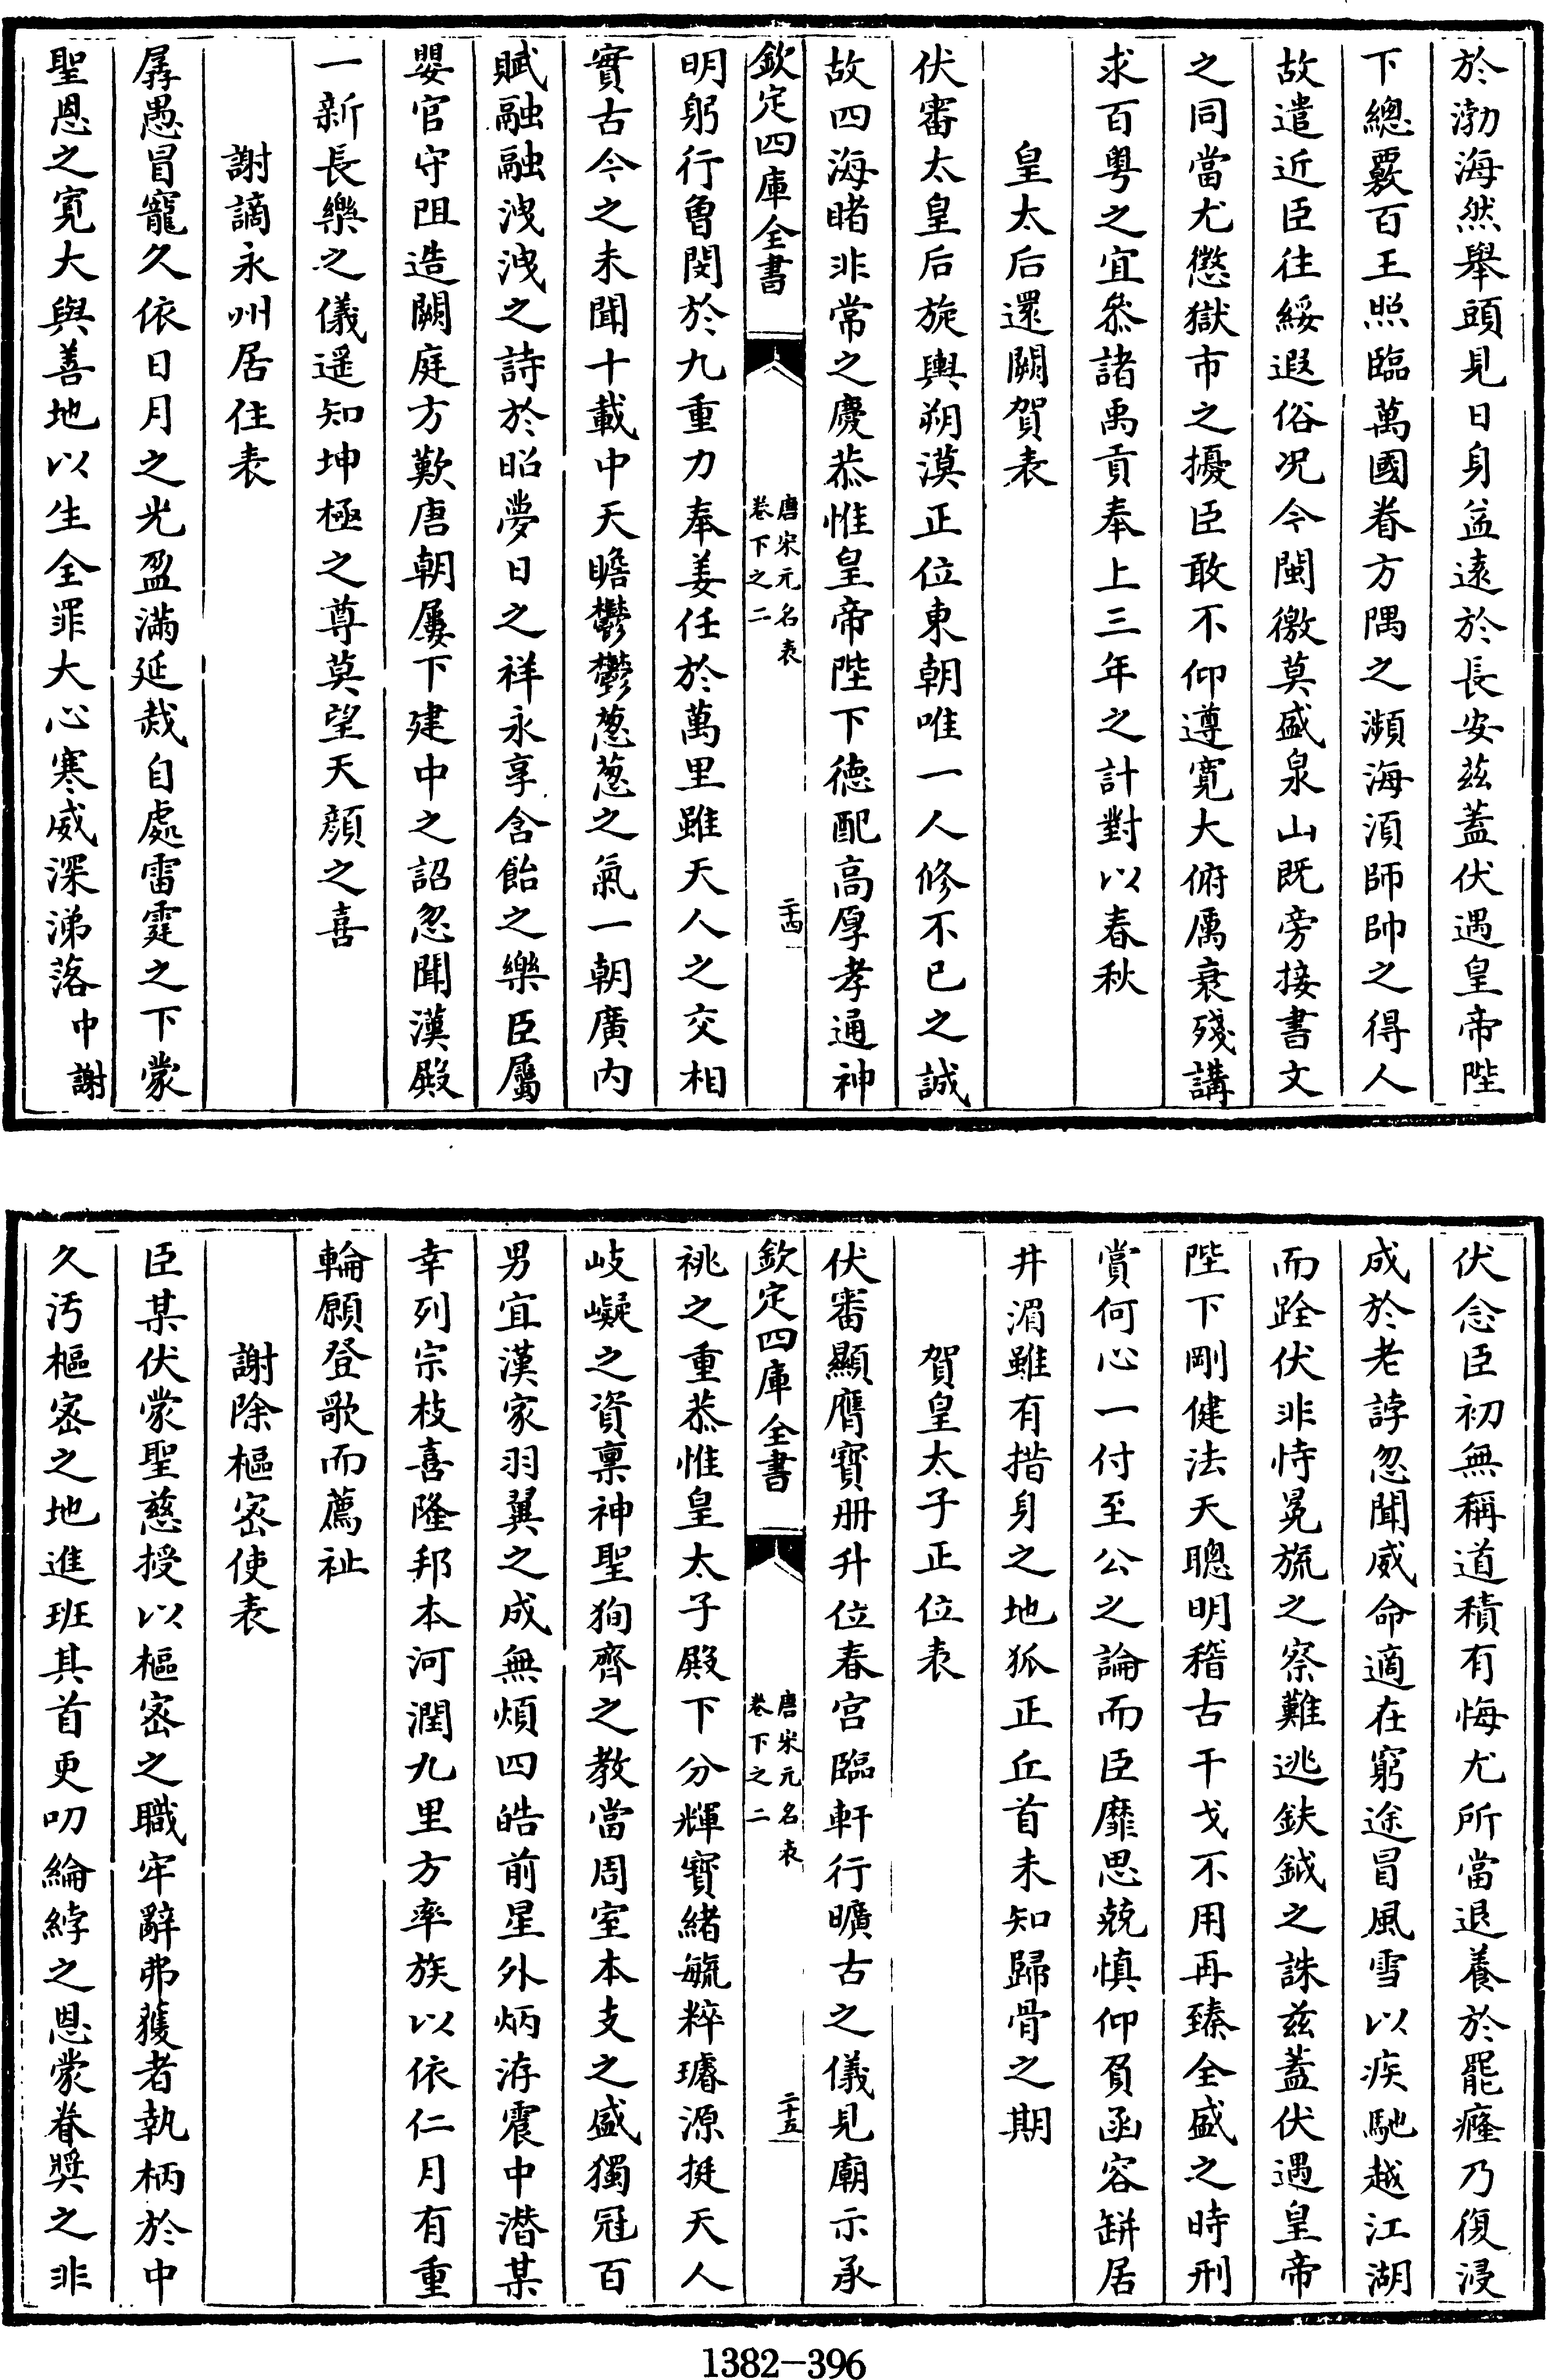 於渤海然舉頭見日身益遠於長安茲蓋伏遇皇帝陛
下總覈百王照臨萬國眷方隅之瀕海湏師帥之得人
故遣近臣往綏遐俗况今閩徼莫盛泉山既旁接書文
之同當尤懲獄市之擾臣敢不仰遵寛大俯厲衰殘講
求百粤之宜叅諸禹貢奉上三年之計對以春秋
皇太后還闕賀表
伏審太皇后旋輿朔漠正位東朝唯一人修不已之誠
故四海睹非常之慶恭惟皇帝陛下德配高厚孝通神
欽定四庫全書
唐宋元名表
卷下之二
二十四
明躬行曾閔於九重力奉姜任於萬里雖天人之交相
實古今之未聞十載中天瞻鬱鬱葱葱之氣一朝廣内
賦融融洩洩之詩於昭夢日之祥永享含飴之樂臣屬
嬰官守阻造闕庭方歎唐朝屢下建中之詔忽聞漢殿
一新長樂之儀遥知坤極之尊莫望天顔之喜
謝謫永州居住表
孱愚冒寵久依日月之光盈滿延烖自處雷霆之下蒙
聖恩之寛大與善地以生全罪大心寒威深涕落中謝
伏念臣初無稱道積有悔尤所當退養於罷癃乃復浸
成於老誖忽聞威命適在窮途冒風雪以疾馳越江湖
而跧伏非恃冕旒之察難逃鈇鉞之誅兹蓋伏遇皇帝
陛下剛健法天聰明稽古干戈不用再臻全盛之時刑
賞何心一付至公之論而臣靡思兢慎仰負函容缾居
井湄雖有措身之地狐正丘首未知歸骨之期
賀皇太子正位表
伏審顯膺寶册升位春宫臨軒行曠古之儀見廟示承
欽定四庫全書
唐宋元名表
卷下之二
二十五
祧之重恭惟皇太子殿下分輝寶緒毓粹璿源挺天人
岐嶷之資稟神聖狥齊之教當周室本支之盛獨冠百
男宜漢家羽翼之成無煩四皓前星外炳洊震中潛某
幸列宗枝喜隆邦本河潤九里方率族以依仁月有重
輪願登歌而薦祉
謝除樞密使表
臣某伏蒙聖慈授以樞密之職牢辭弗獲者執柄於中
久汚樞密之地進班其首更叨綸綍之恩蒙眷奬之非
1382-396